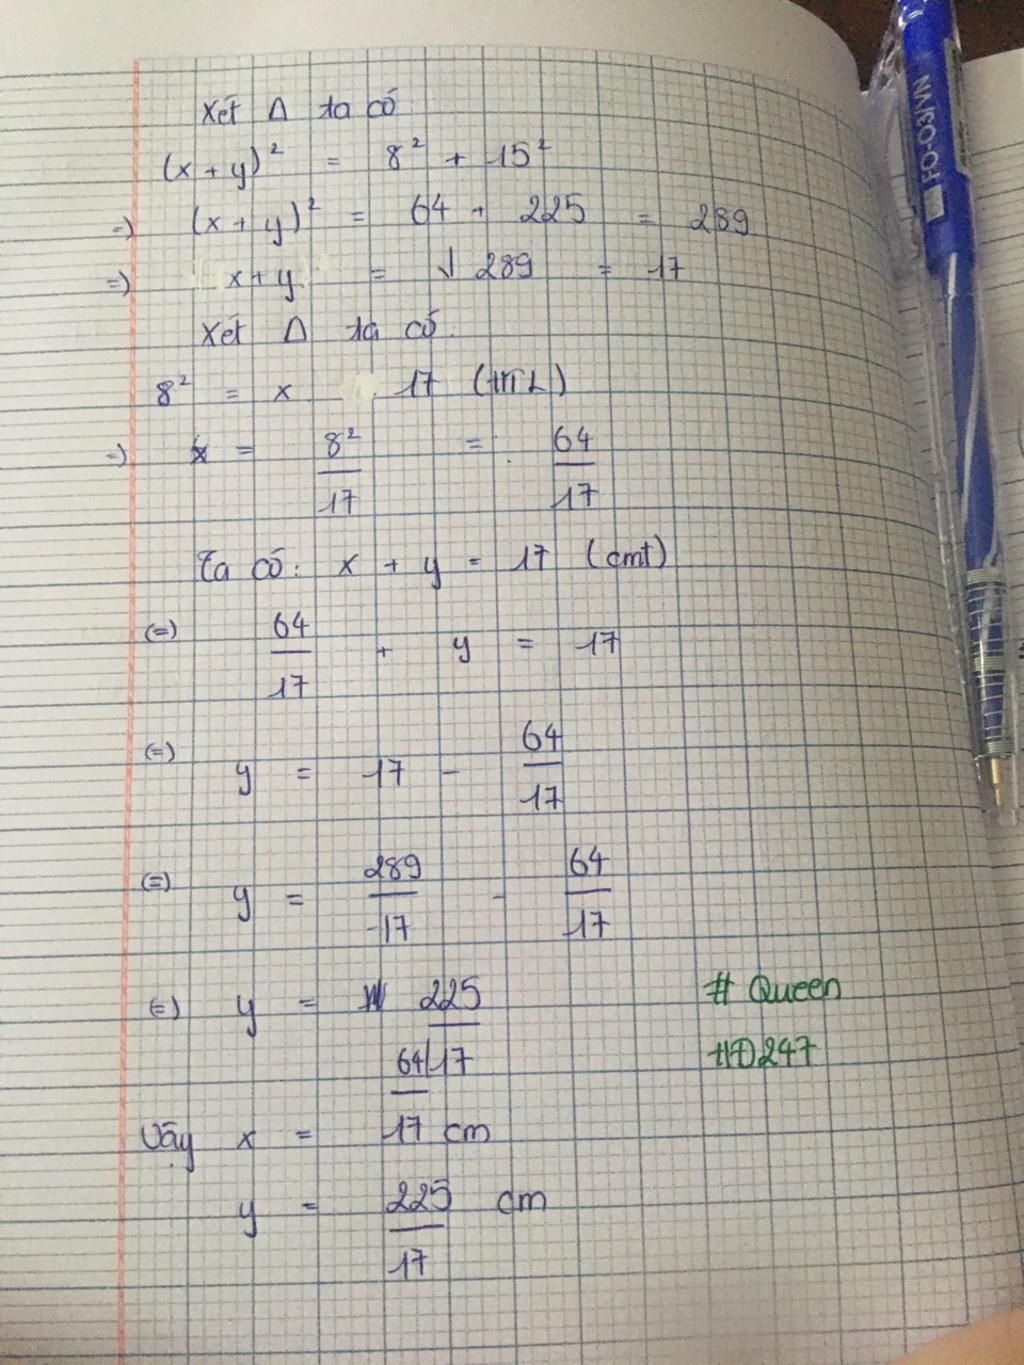 Xét Δ ta có
(x + y)² = 8² + 15²
=) (x + y)² = 64 + 225 = 289
=) x + y = √289 = 17
Xét Δ ta có
8² = x 17 (HTL)
=) x = 8²/17 = 64/17
Ta có: x + y = 17 (cmt)
(=) 64/17 + y = 17
(=) y = 17 - 64/17
(=) y = 289/17 - 64/17
(=) y = 225/17
Vậy x = 64/17 cm
y = 225/17 cm
# Queen
#TD247
FO-03/VN